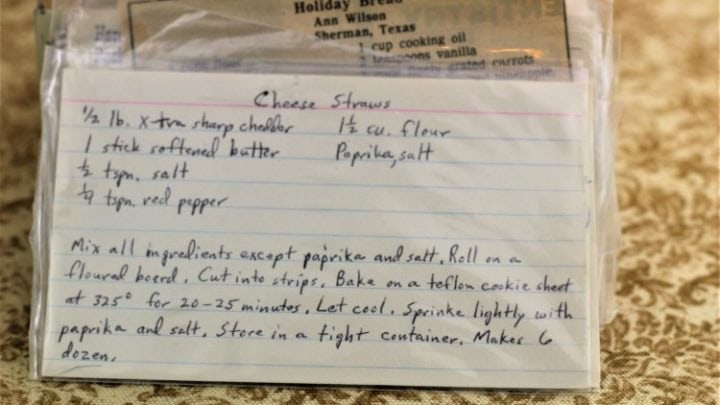 Holiday Bread
Ann Wilson
Sherman, Texas
1 cup cooking oil
2 teaspoons vanilla
grated carrots
pineapple,
Cheese Straws
1/2 lb. x-tra sharp cheddar
1 stick softened butter
1/2 tspn. salt
1/4 tspn. red pepper
1 1/2 cu. flour
Paprika, salt
Mix all ingredients except paprika and salt. Roll on a
floured board. Cut into strips. Bake on a teflon cookie sheet
at 325° for 20-25 minutes. Let cool. Sprinke lightly with
paprika and salt. Store in a tight container. Makes 6
dozen.